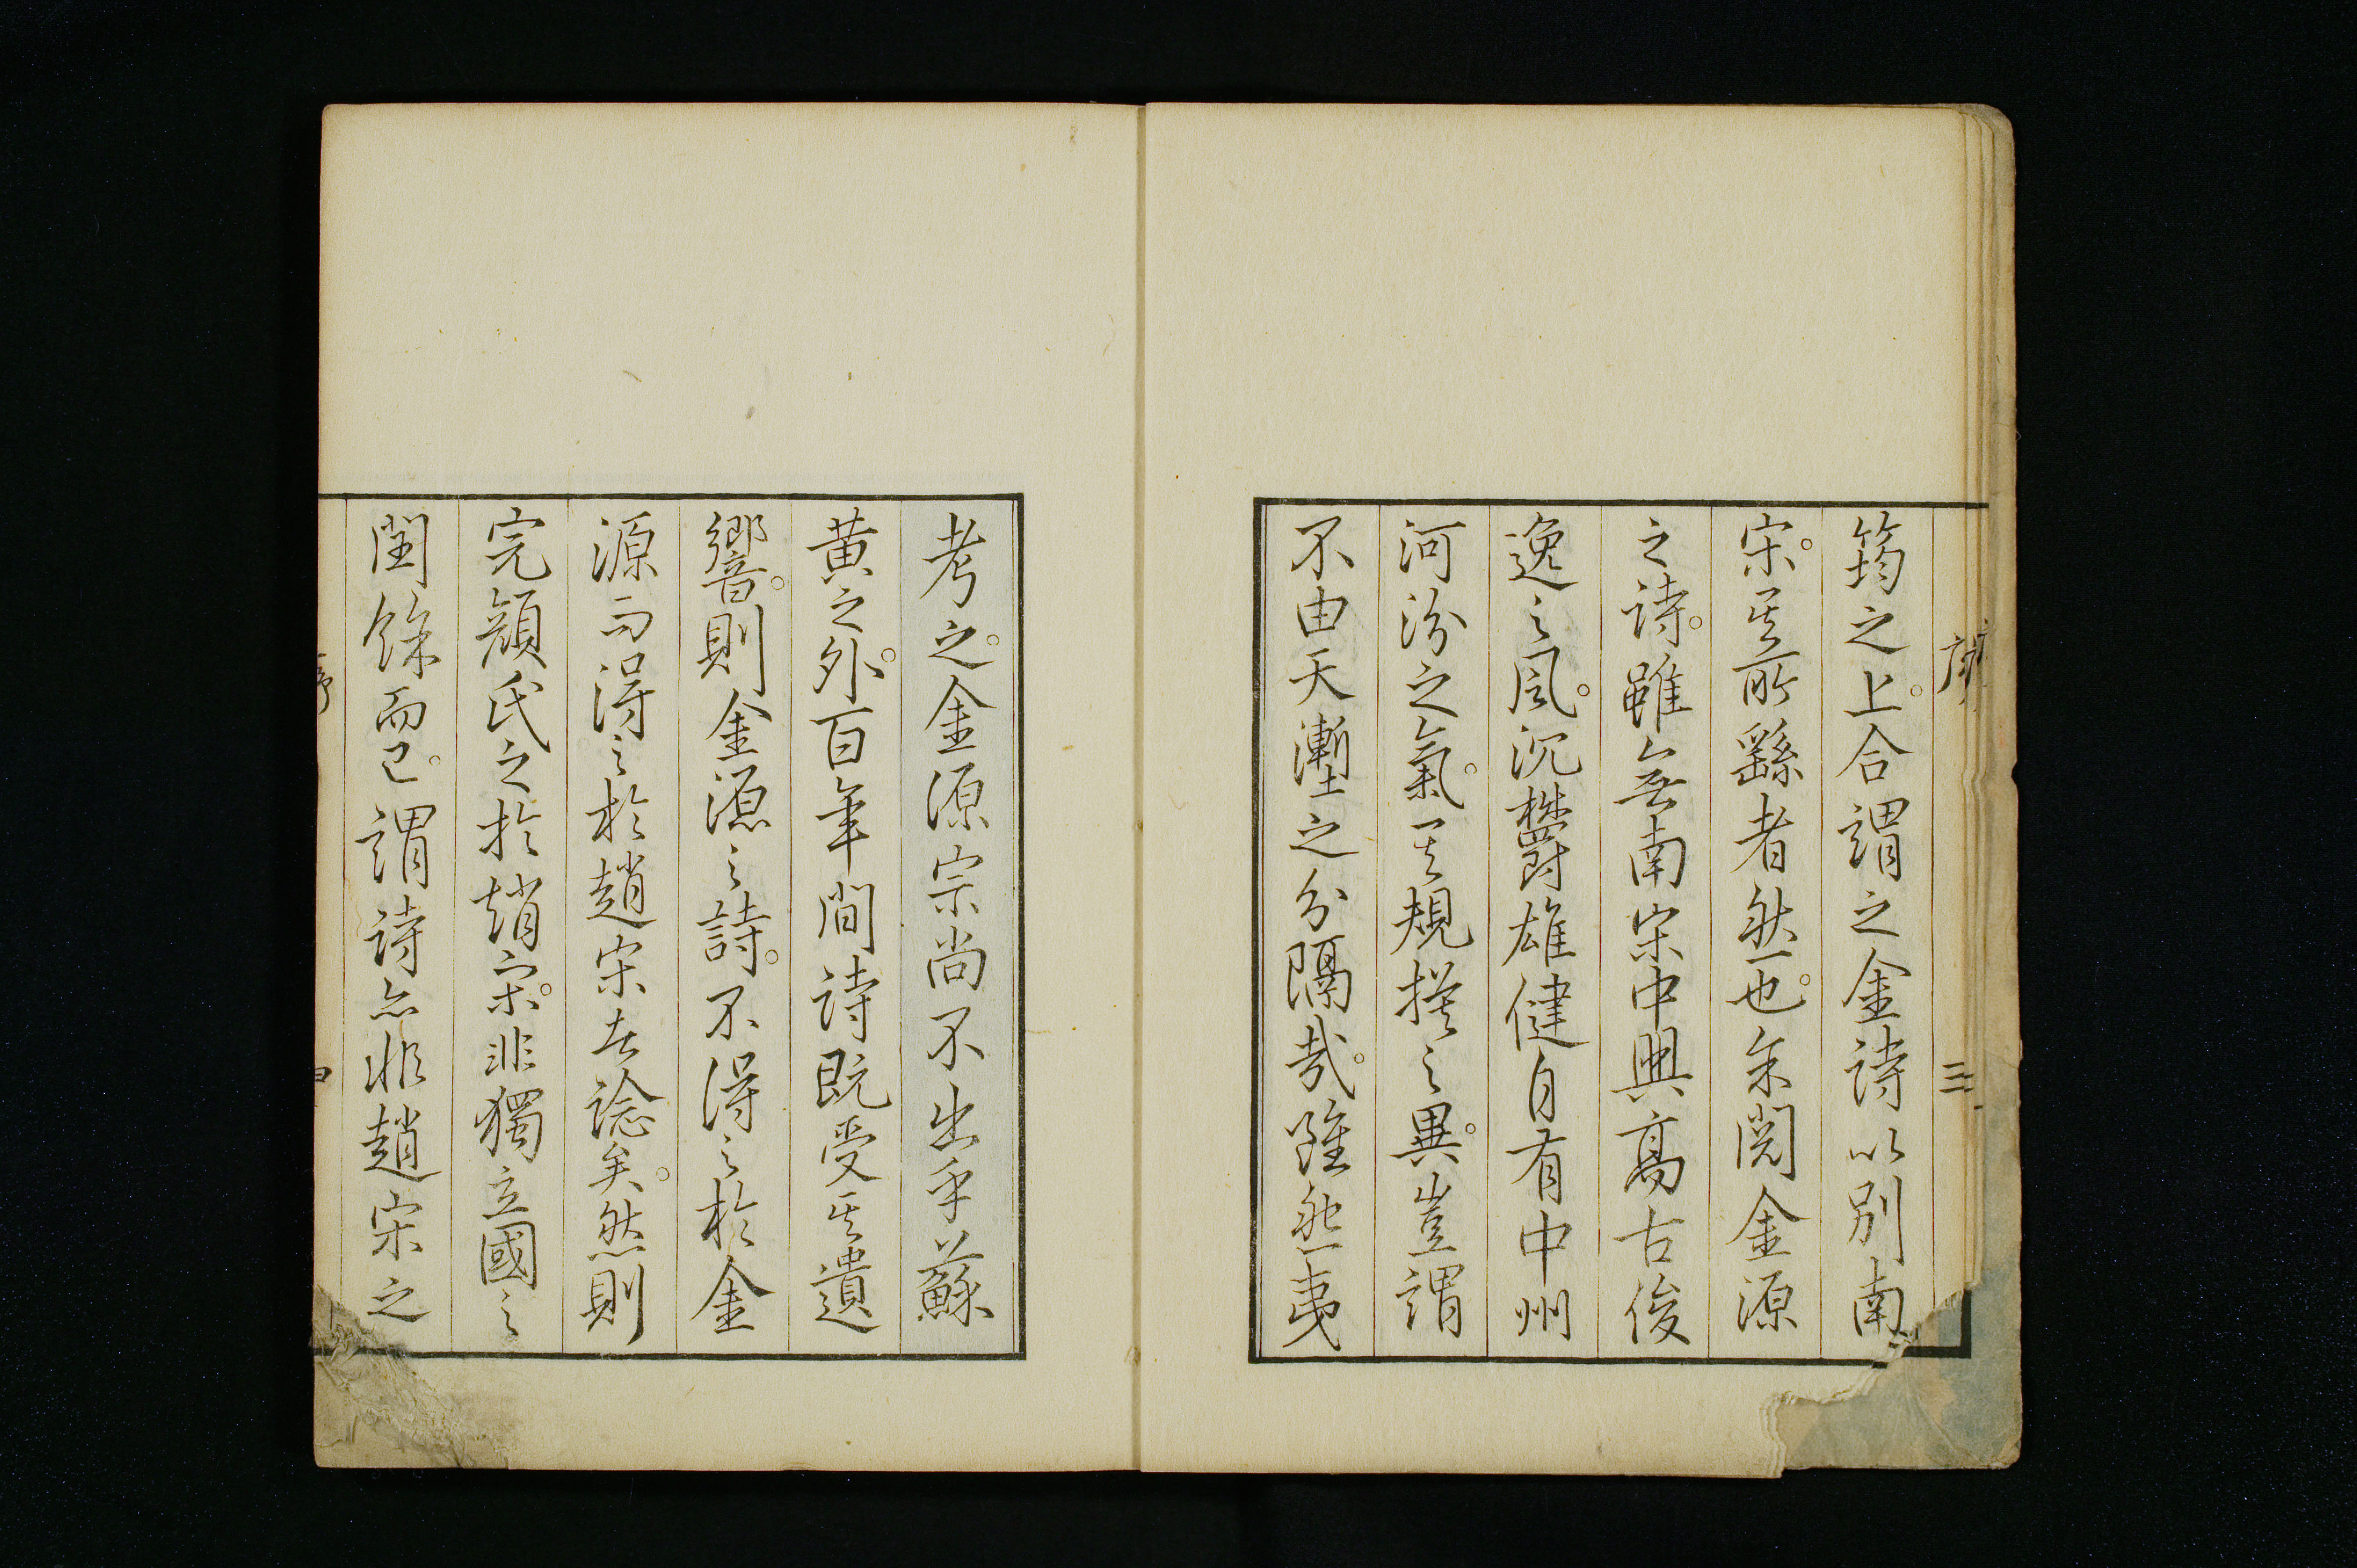 序
三
筠之上。合謂之金詩以別南
宋。其所繇者然也。余閱金源
之詩。雖無南宋中興高古俊
逸之風。沉鬱雄健自有中州
河汾之氣。其規撫之異。豈謂
不由天塹之分隔哉。雖然夷
考之。金源宗尚不出乎蘇
黃之外。百年間詩既受其遺
響。則金源之詩。不得之於金
源而得之於趙宋者諗矣。然則
完顏氏之於趙宋。非獨立國之
閏餘而已。謂詩亦非趙宋之
序